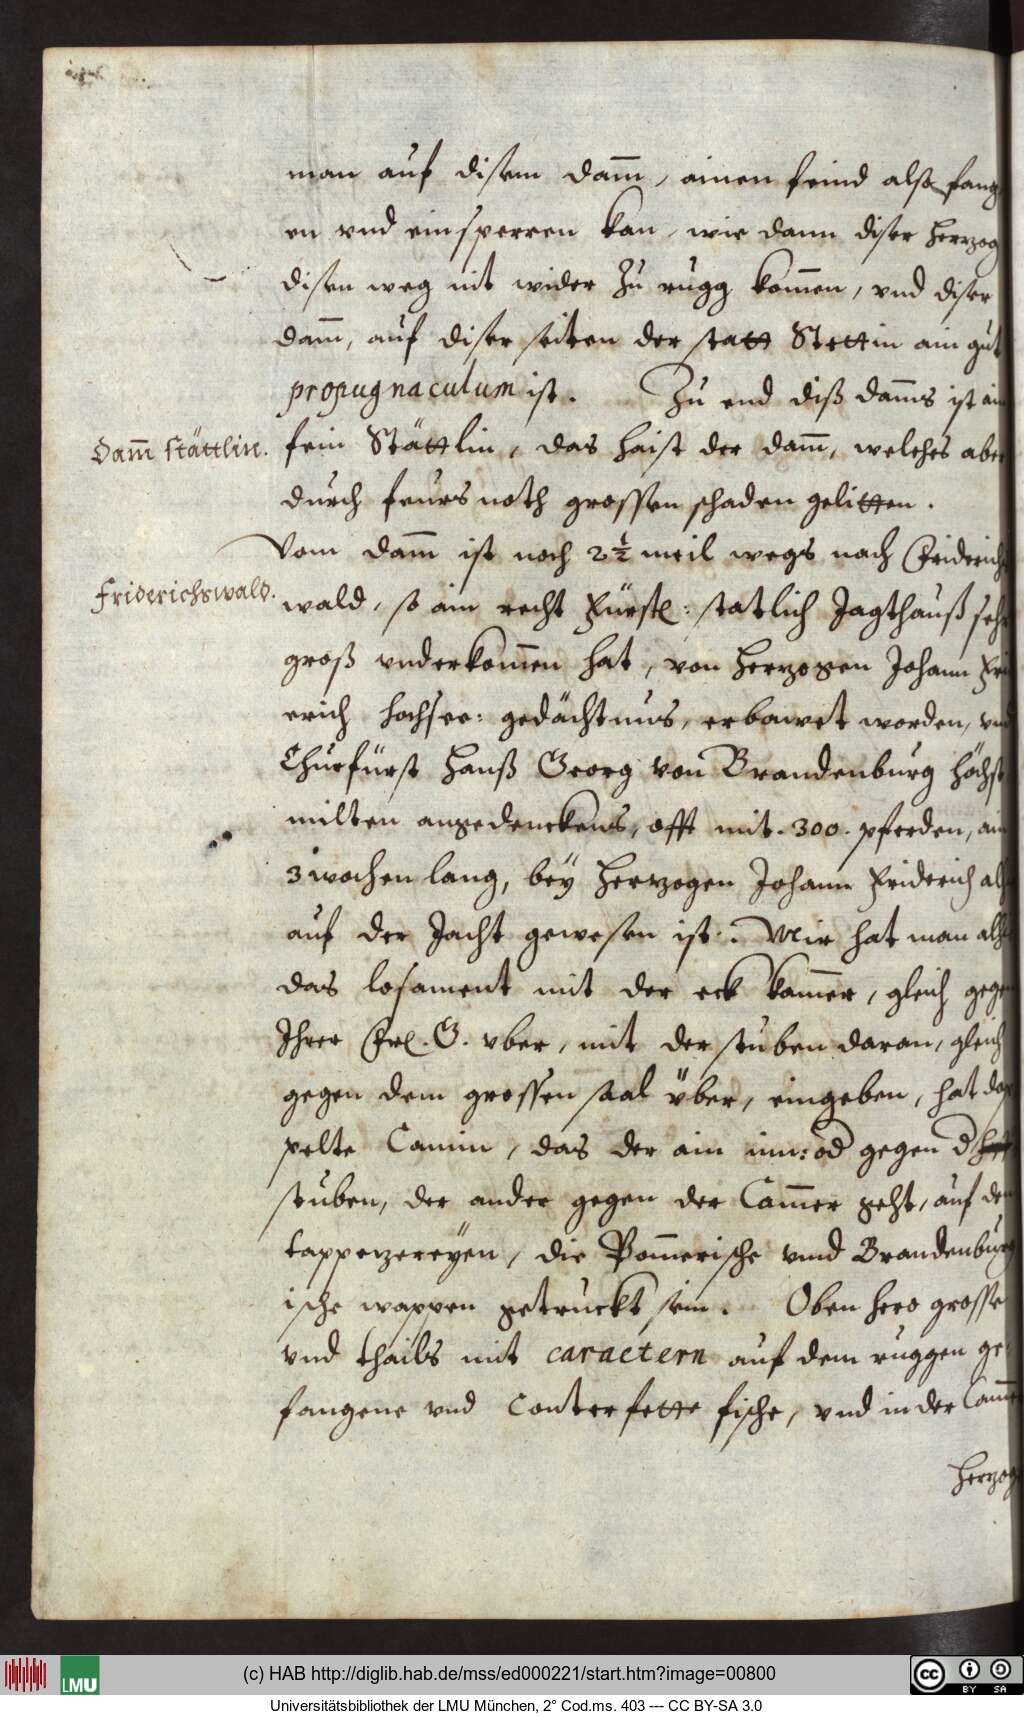 man auf disem dam̄, ainen feind alsß fang
en vnd einsperren kan, wie dann diser Herzog
disen weg nit wider zu rugg kom̄en, vnd diser
dam̄, auf diser seiten der statt Stettin ain gut
propugnaculum ist. Zu end diß dam̄s ist ain
Dam̄ stättlin.
fein Stättlin, das haist der dam̄, welches aber
durch feurs noth grossen schaden gelitten.
Vom dam̄ ist noch 2½ meil wegs nach Friderichs
Friderichswald.
wald, so ain recht Fürstl: statlich Jagthauß sehr
groß vnderkom̄en hat, von Herzogen Johann Frid
erich hochsee: gedächtnus, erbawet worden, vnd
Churfürst Hanß Georg von Brandenburg höchst
milten angedenckens, offt mit .300. pferden, ain
3 wochen lang, bey Herzogen Johann Friderich
auf der Jacht gewesen ist. Mir hat man
das losament mit der eck kam̄er, gleich gegen
Ihrer Frl. G. vber, mit der stuben daran, gleich
gegen dem grossen saal über, eingeben, hat dop
pelte Camin, das der ain inn: od gegen d
stuben, der ander gegen der Cam̄er geht, auf den
tappezereyen, die Pom̄erische vnnd Brandenburg
ische wappen getruckt sein. Oben hero grosse
vnd thails mit caractern auf dem ruggen ge
fangene vnd Conterfette fische, vnd in der Cam̄er
Herzog
(c) HAB http://diglib.hab.de/mss/ed000221/start.htm?image=00800
LMU
cc BY SA
Universitätsbibliothek der LMU München, 2° Cod.ms. 403 --- CC BY-SA 3.0